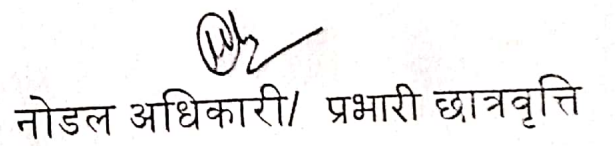 नोडल अधिकारी/ प्रभारी छात्रवृत्ति